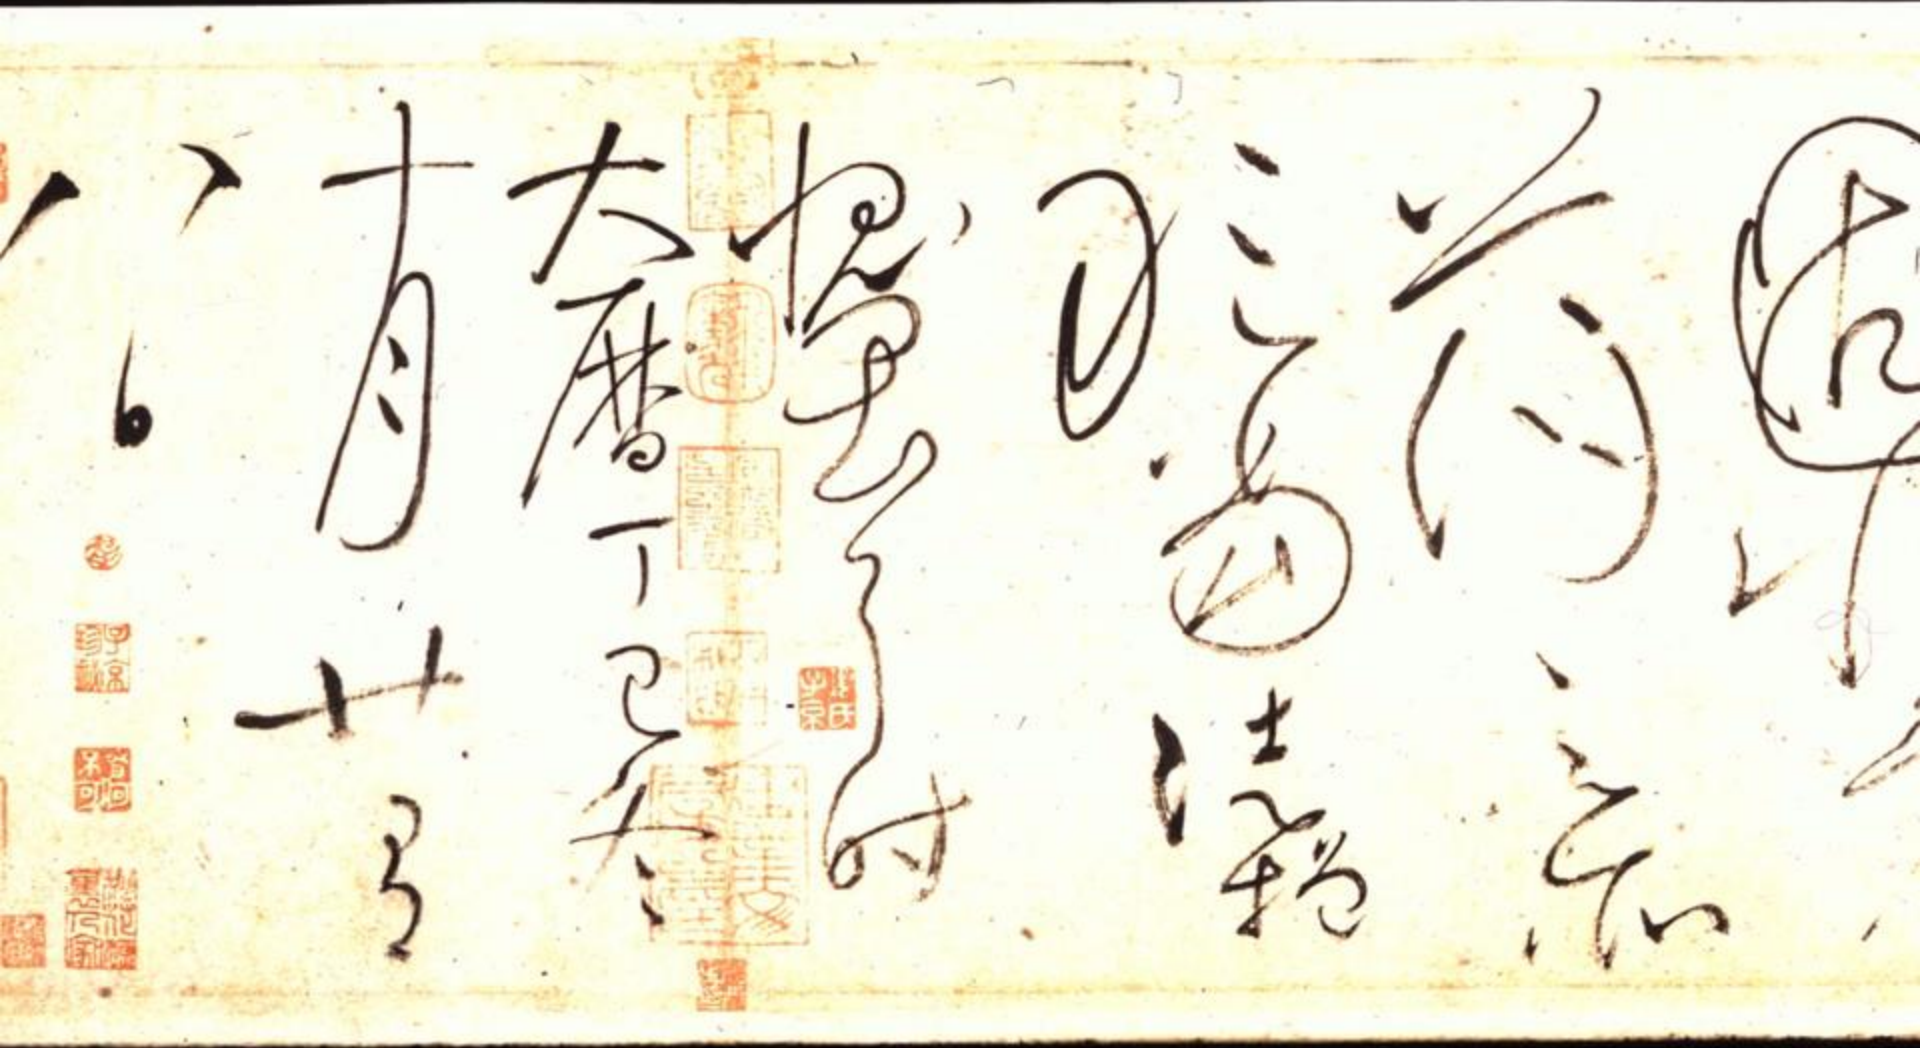 固非
蕩之所
敢當徒增
愧畏耳時
大曆丁巳冬
十月廿有
八日